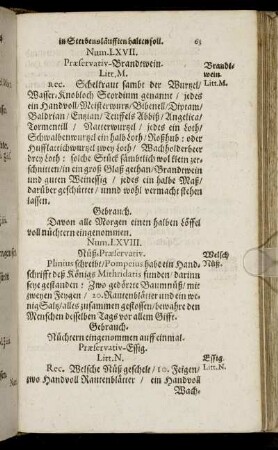 in Sterbensläufften halten soll. 63
Num. LXVII.
Præservativ-Brandtwein.
Brandt-
wein.
Litt. M.
Litt. M.
Rec. Schelkraut sambt der Wurtzel
Wasser Knobloch Scordium genannt / jedes
ein Handvoll / Meisterwurtz / Bibenell / Diptam /
Baldrian / Entzian / Teuffels Abbiß / Angelica /
Tormentill / Natterwurtzel / jedes ein Loth /
Schwalbenwurtzel ein halb Loth / Roßhub: oder
Hufflattichwurtzel zwey Loth / Wachholderber
drey Loth: solche Stück sämbtlich wol klein zer-
schnitten / in ein groß Glaß gethan / Brandtwein
und guten Weinessig / jedes ein halbe Maß /
darüber geschüttet / unnd wohl vermacht stehen
lassen.
Gebrauch.
Davon alle Morgen einen halben Löffel
voll nüchtern eingenommen.
Num. LXVIII.
Nüß-Præservativ.
Welsch
Nüß.
Plinius schreibt / Pompeius hab ein Hand-
schrifft deß Königs Mithridatis funden / darinn
seye gestanden: Zwo gedörrte Baumnüß / mit
zweyen Feygen / 20. Rautenblätter und ein we-
nig Saltz / alles zusammen gestossen / bewahre den
Menschen desselben Tags vor allem Gifft.
Gebrauch.
Nüchtern eingenommen auff einmal.
Præservativ-Essig.
Essig.
Litt. N.
Litt. N.
Rec. Welsche Nüß geschelt / 10. Feigen /
zwo Handvoll Rautenblätter / ein Handvoll
Wach-